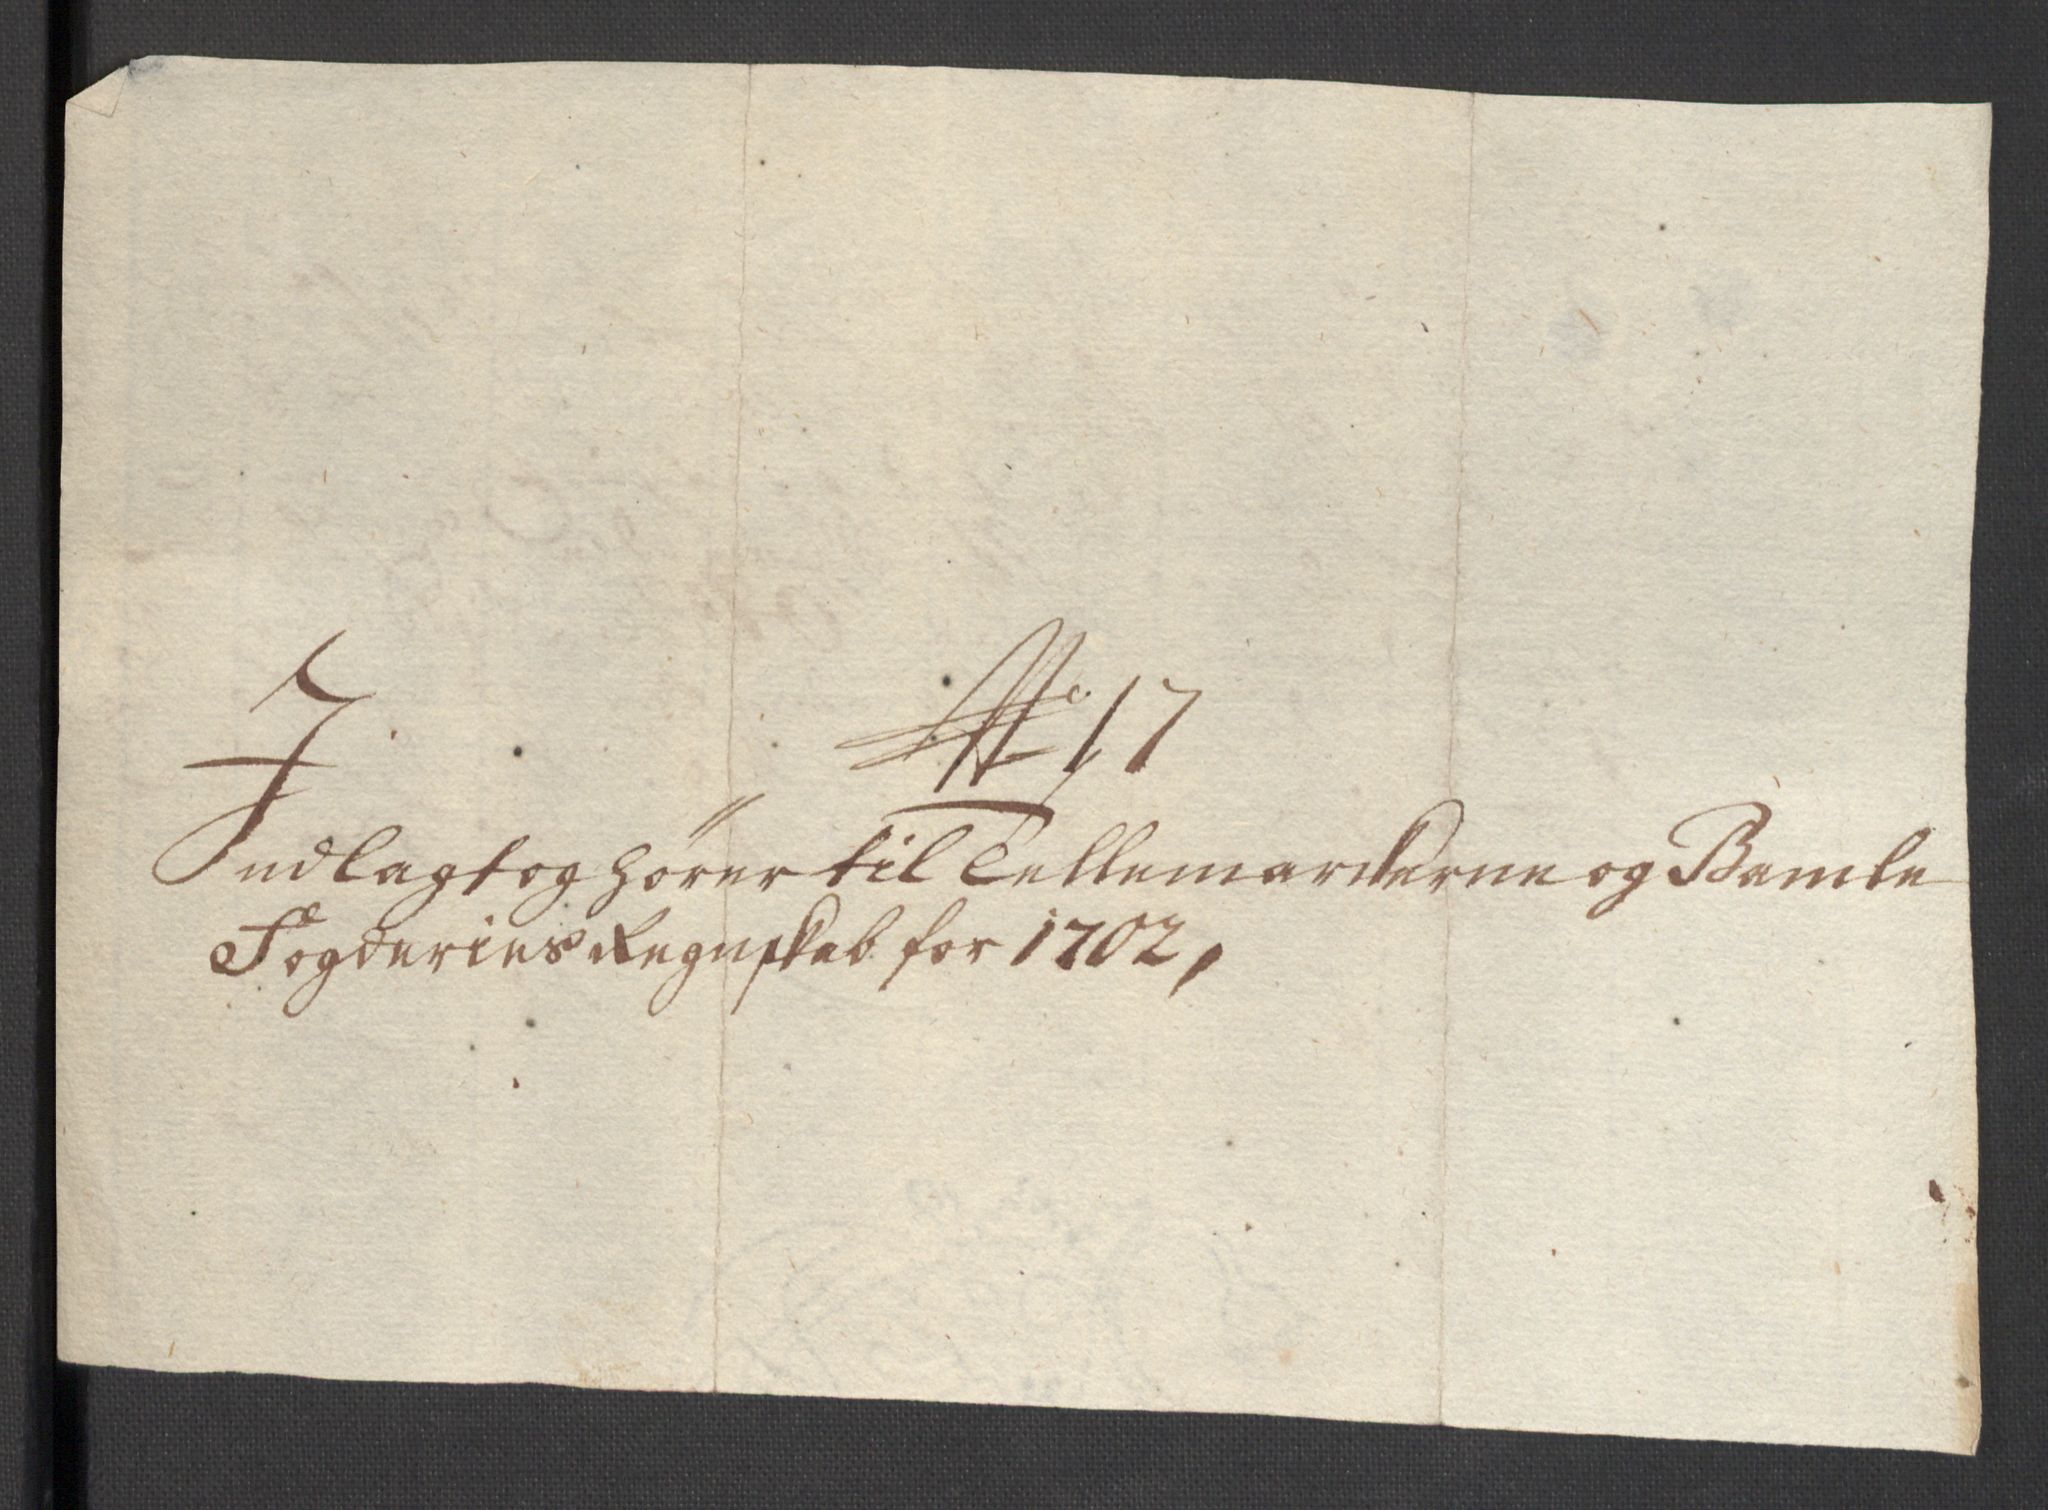 No 17
Indlagt og hører til Tellemarckerne og Bamble
Fogderies Regnskab for 1702,